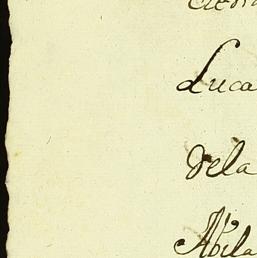 Luca
dela
Abila